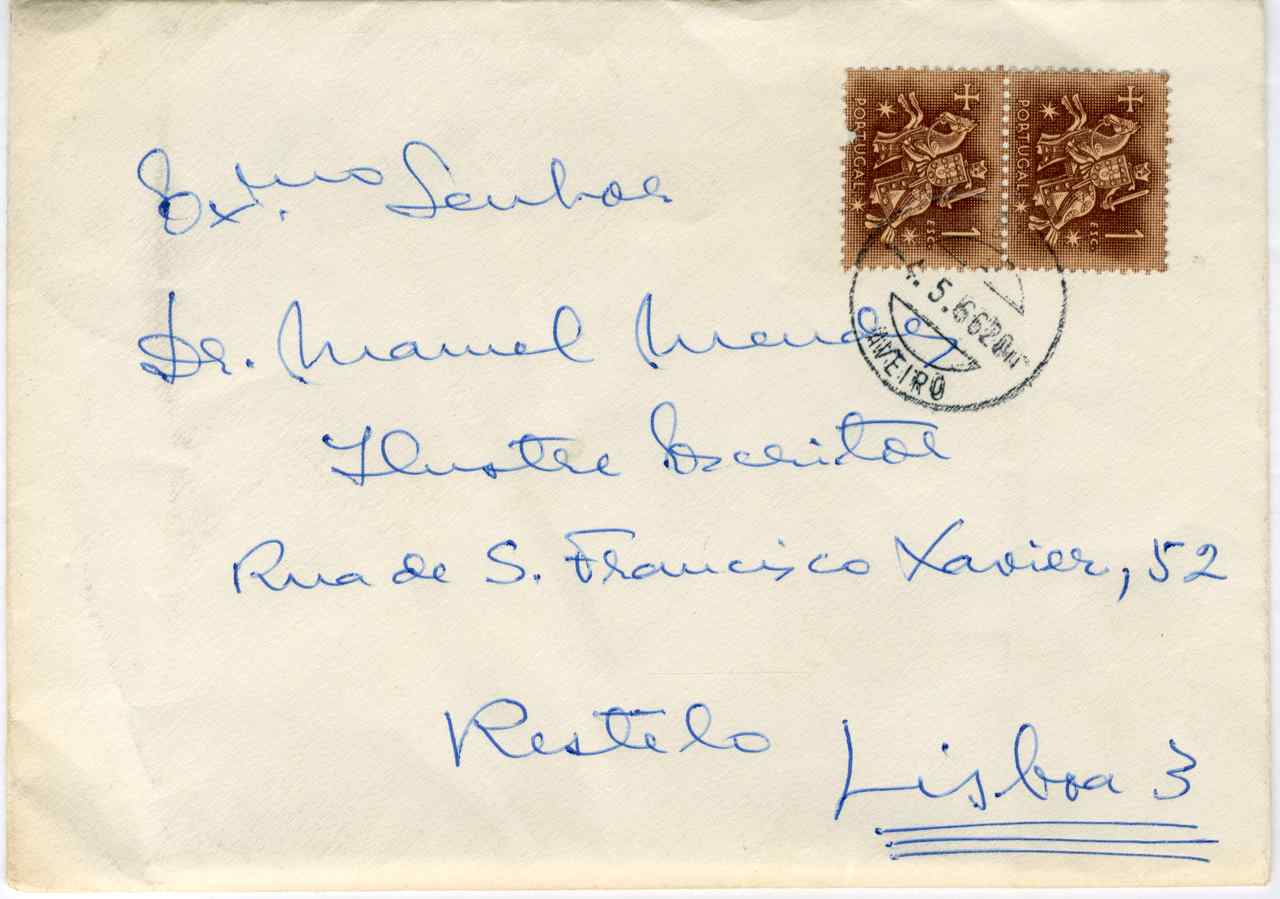 PORTUGAL 1 ESC.
PORTUGAL 1 ESC.
5.66
AVEIRO
Ex.mo Senhor
Dr. Manuel Mendes
Ilustre Escritor
Rua de S. Francisco Xavier, 52
Restelo
Lisboa 3